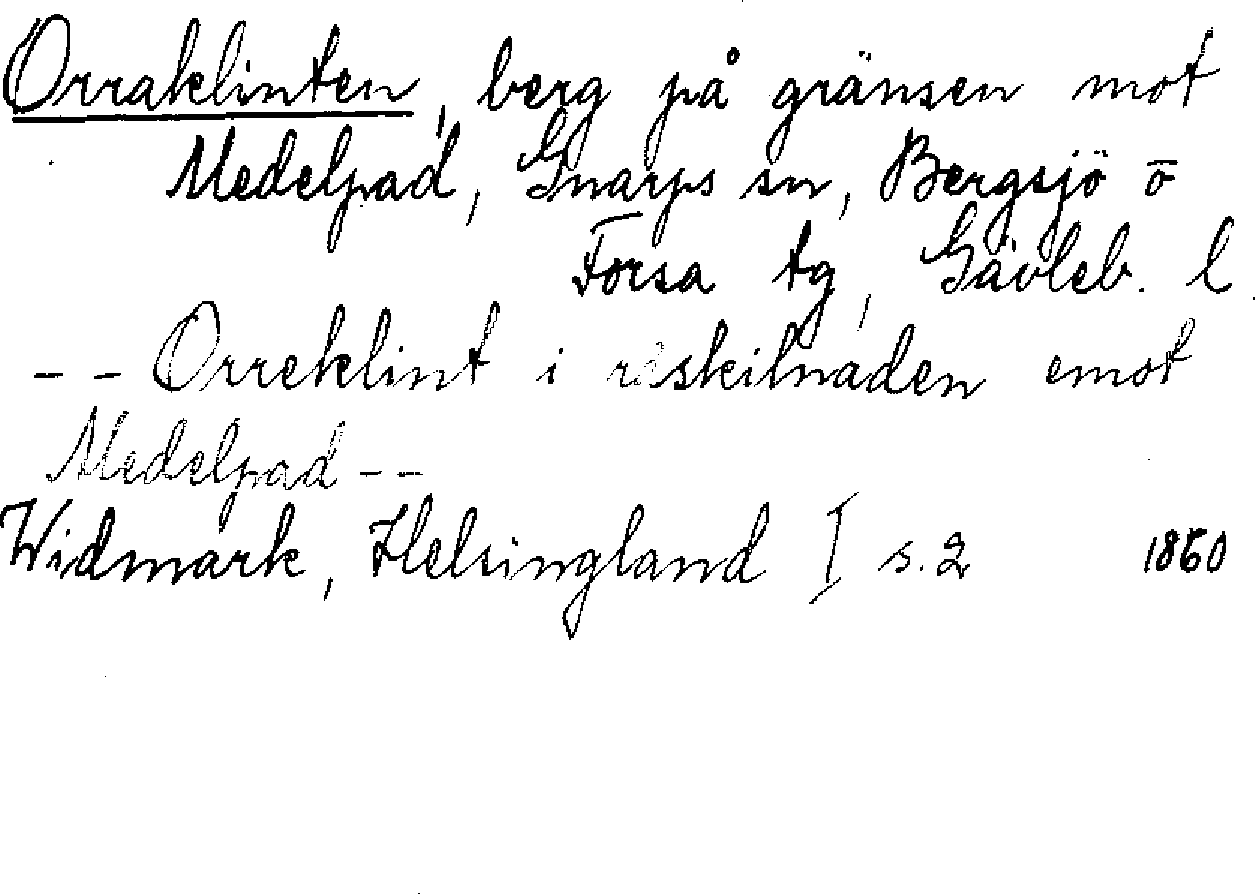 Orraklinten, berg på gränsen mot
Medelpad, Gnarps sn, Bergsjö o
Forsa tg, Gävleb. l.
- - Orreklint i råskilnaden emot
Medelpad - -
Widmark, Helsingland I s. 2 1860